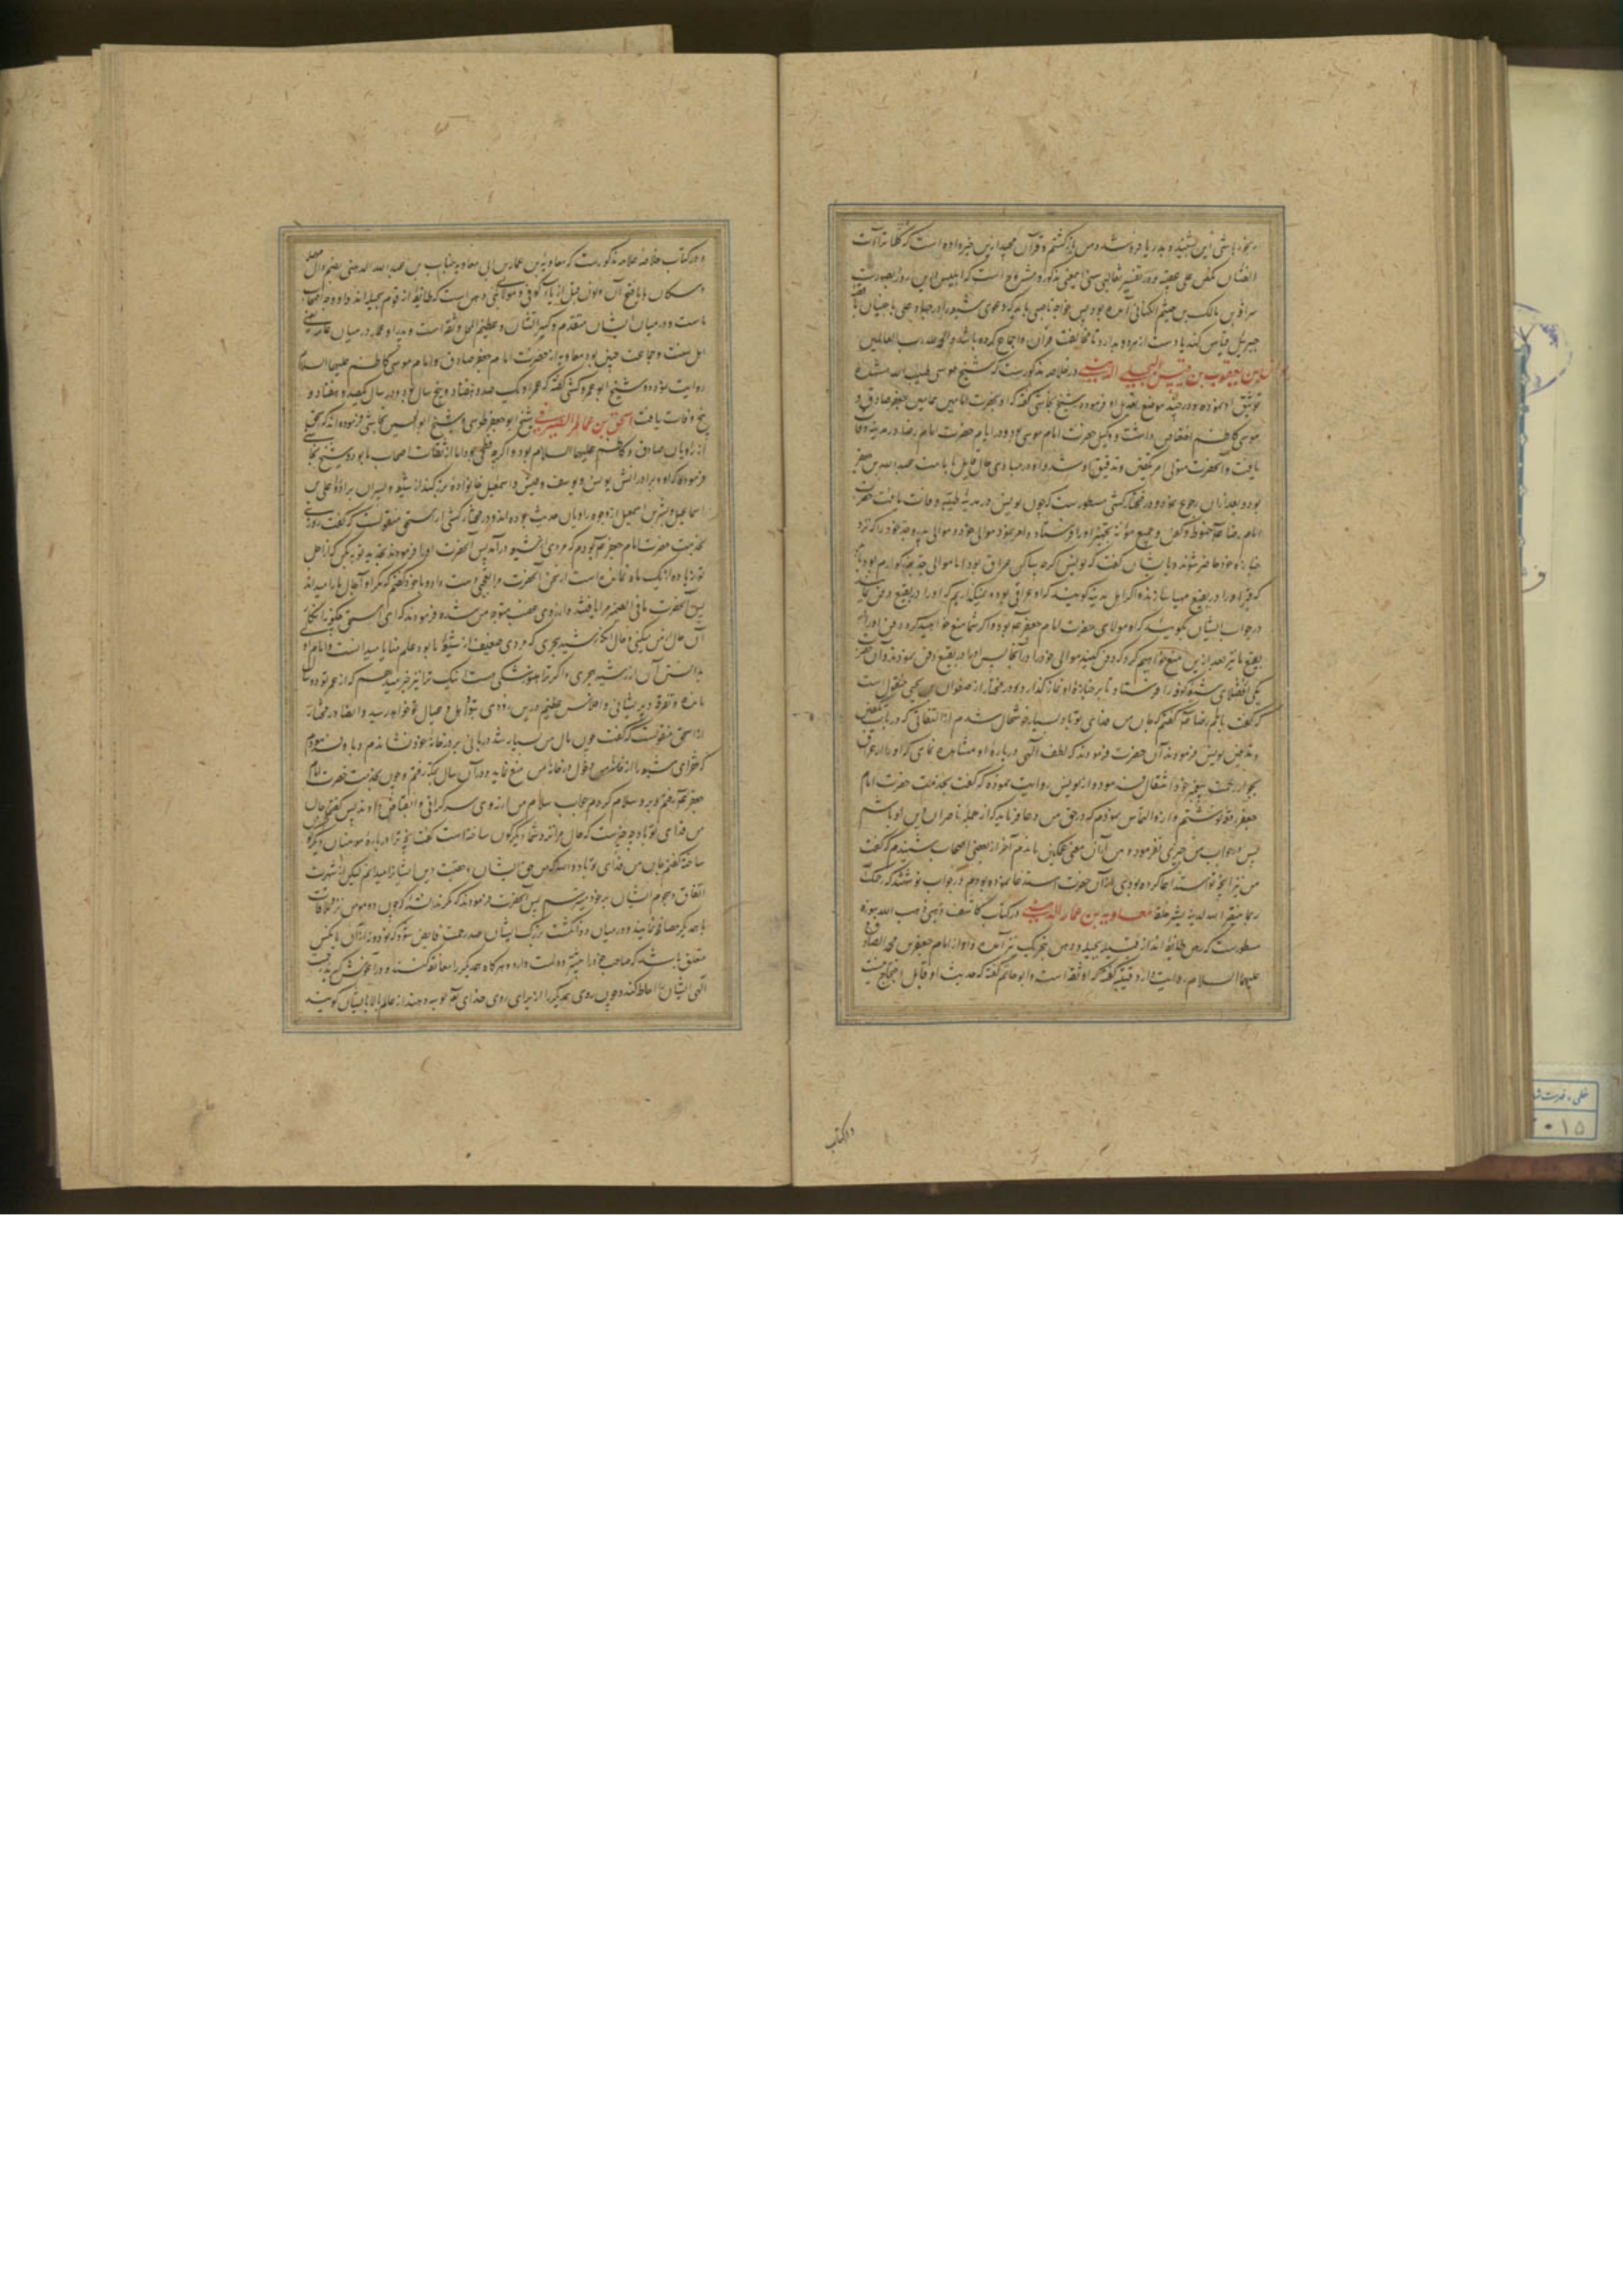 الفئتان نکص علی عقبیه و در تفسیر ثعالبی سنی این معنی مذکور و مشروح است که ابلیس این روز بصورت
سراقة بن مالک بن جشم الکنانی آمده بود پس خواجه ناصبی باید که دعوی شیعه را در جهاد علی با جنیان با قصه
جبریل قیاس کند یا دست از هر دو بدارد تا مخالفت قرآن و اجماع کرده باشد و الحمد لله رب العالمین
یونس بن یعقوب بن قیس البجلی الدهنی در خلاصه مذکورست که شیخ طوسی طیب الله مشهده
توثیق او نموده و در چند موضع تعدیل او فرموده و شیخ نجاشی گفته که او بحضرت امامین همامین جعفر صادق و
موسی کاظم اختصاص داشت و وکیل حضرت امام موسی بود و در ایام حضرت امام رضا در مدینه وفات
یافت و آنحضرت متولی امر تکفین و تدفین او شد و او در مبادی حال قایل بامامت عبدالله بن جعفر
بود و بعد از آن رجوع نمود و در مختار کشی مسطورست که چون یونس در مدینه طیبه وفات یافت حضرت
امام رضا حنوط و کفن و جمیع مؤنة تجهیز او را فرستاد و امر نمود موالی خود و موالی پدر و جد خود را که نزد
جنازه او حاضر شوند و بایشان گفت که یونس اگر چه ساکن عراق بود اما موالی جد بزرگوارم بود باید
که قبر او را در بقیع مهیا سازند و اگر اهل مدینه گویند که او عراقی بوده و نمیگذاریم که او را در بقیع دفن نمایند
در جواب ایشان بگویید که او مولای حضرت امام جعفر بوده و اگر شما منع خواهید کرد دفن او را در
بقیع ما نیز بعد از این منع خواهیم کرد که دفن کنید موالی خود را در آنجا پس او را در بقیع دفن نمودند و آن حضرت
یکی از فضلای شیعه کوفه را فرستاد تا بر جنازه او نماز گذارد و در مختار از صفوان بن یحیی منقول است
که گفت بامام رضا گفتم که جان من فدای تو باد بسیار خوشحال شدم از التفاتی که در باب تکفین
و تدفین یونس فرمودند آن حضرت فرمودند که لطف الهی درباره او مشاهده نمای که او را از عراق
بجوار رحمت پیغمبر خود انتقال فرموده و از یونس روایت نموده که گفت بخدمت حضرت امام
جعفر رقعه نوشتم و از او التماس نمودم که در حق من دعا فرماید که از جمله ناصران دین او باشم
پس در جواب من چیزی نفرموده و من از آن معنی غمگین ماندم آخر از بعضی اصحاب شنیدم که گفت
من نیز آنچه تو استدعا کرده بودی از آن حضرت استدعا نموده بودم در جواب نوشتند که رحمک
معاویه بن عمار الدهنی در کتاب کاشف ذهبی ناصب الله
مسطورست که دهن طایفه اند از قبیله بجیله و دهن بتحریک نیز آمده و او از امام جعفر بن محمد الصادق
علیهما السلام روایت دارد و قتیبه گفته که او ثقه است و ابو حاتم گفته که حدیث او قابل احتجاج نیست
در کتاب
و در کتاب خلاصه علامه مذکورست که معاویة بن عمار بن ابی معاویه خباب بن عبدالله الدهنی بضم دال مهمله
و سکان ها یا فتح آن و نون قبل از یاء کوفی و مولای بنی دهن است که طایفه از قوم بجیله اند و او وجه اصحاب
ماست و در میان ایشان متقدم و کبیر الشان و عظیم المحل و ثقه است و پدر او عمار در میان عامه یعنی
اهل سنت و جماعت چنین بود معاویه از حضرت امام جعفر صادق و امام موسی کاظم علیهما السلام
روایت نموده و شیخ ابو عمرو کشی گفته که عمر او یکصد و هفتاد و پنج سال بود و در سال یکصد و هفتاد و
پنج وفات یافت اسحق بن عمار الصیرفی شیخ ابو جعفر طوسی و شیخ ابوالحسین نجاشی فرموده اند که اسحق
از راویان صادق و کاظم علیهما السلام بود و اگر چه فطحی بود اما از ثقات اصحاب ما بود و شیخ نجاشی
فرموده که او و برادرانش یونس و یوسف و قیس و اسمعیل خانواده بزرگند از شیعه و پسران برادر او علی بن
اسماعیل و بشر بن اسمعیل از وجوه راویان حدیث بوده اند و در مختار کشی از اسحق منقولست که گفت روزی
بخدمت حضرت امام جعفر بودم که مردی از شیعه درآمد پس آنحضرت او را فرمودند تجدید توبه بکن که از اجل
تو زیاده از یک ماه نمانده است از سخن آنحضرت مرا تعجبی دست داد و با خود گفتم که مگر او آجال ما را میداند
پس آنحضرت ما فی الضمیر مرا یافته و از روی غضب متوجه من شده فرمودند که ای اسحق چگونه انکار
آن حال از من میکنی و حال آنکه رشید هجری که مردی ضعیف از شیعه ما بود و علم منایا میدانست و امام اولی
بدانستن آن از رشید هجری و اگر ترا هنوز شکی هست اینک ترا نیز خبر میدهم که از عمر تو دو سال
مانده و تفرقه و پریشانی و افلاس عظیم در این زودی بتو و اهل و عیال تو خواهد رسید و ایضا در مختار
از اسحق منقولست که گفت چون مال من بسیار شد دربانی بر در خانه خود نشاندم و باو فرمودم
که فقرای شیعه را از دخول در خانه من منع نماید و در آن سال بمکه رفتم و چون بخدمت حضرت امام
جعفر رفتم و برو سلام کردم جواب سلام من از روی سرگرانی و انقباض دادند پس گفتم جان
من فدای تو باد چه چیزست که حال مرا نزد شما دیگرگون ساخته است گفت آنچه ترا درباره مومنان دیگرگون
ساخته گفتم جان من فدای تو باد و الله که من حق ایشان و حقیت دین ایشان را میدانم لیکن از شهرت
اتفاق و هجوم ایشان بر خود میترسم پس آنحضرت فرمودند که مگر ندانسته که چون دو مومن نزد ملاقات
با یکدیگر مصافحه نمایند در میان دو انگشت بزرگ ایشان صد رحمت فایض شود که نود و نه از آن بآنکس
متعلق باشد که صاحب خود را بیشتر دوست دارد و هر گاه یکدیگر را معانقه کنند و در آغوش گیرند رحمت
الهی ایشان را احاطه کند و چون روی یکدیگر را از برای روی خدای تعالی بوسه دهند از عالم بالا بایشان گویند